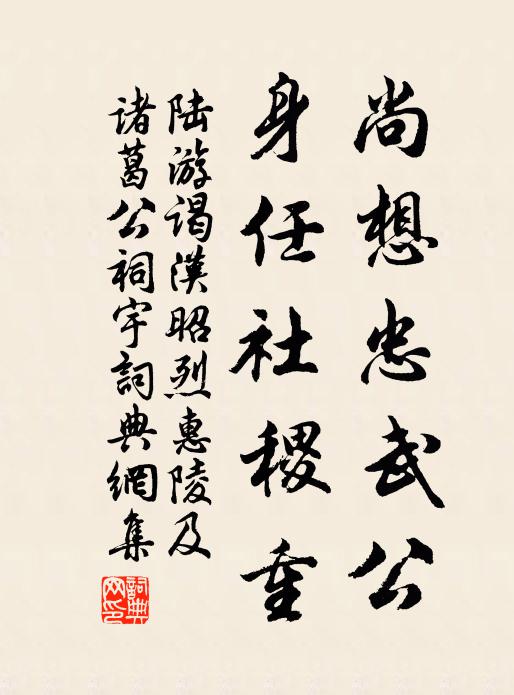 尚想忠武公
身任社稷重
陆游谒漢昭烈惠陵及
诸葛公祠宇詞典網集
詞典
网印